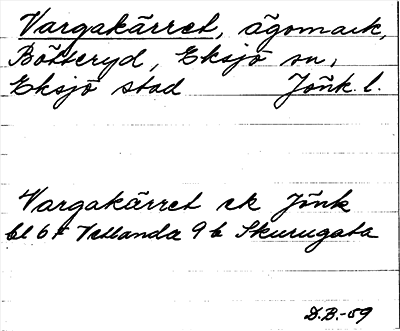 Vargakärret, ägomark,
Bötteryd, Eksjö sn,
Eksjö stad Jönk. l.
Vargakärret ek Jönk
bl 67 Vetlanda 9b Skurugata
D.B.-59